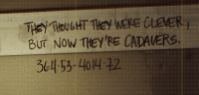 THEY THOUGHT THEY WERE CLEVER,
BUT NOW THEY'RE CADAVERS.
364-53-4014 72